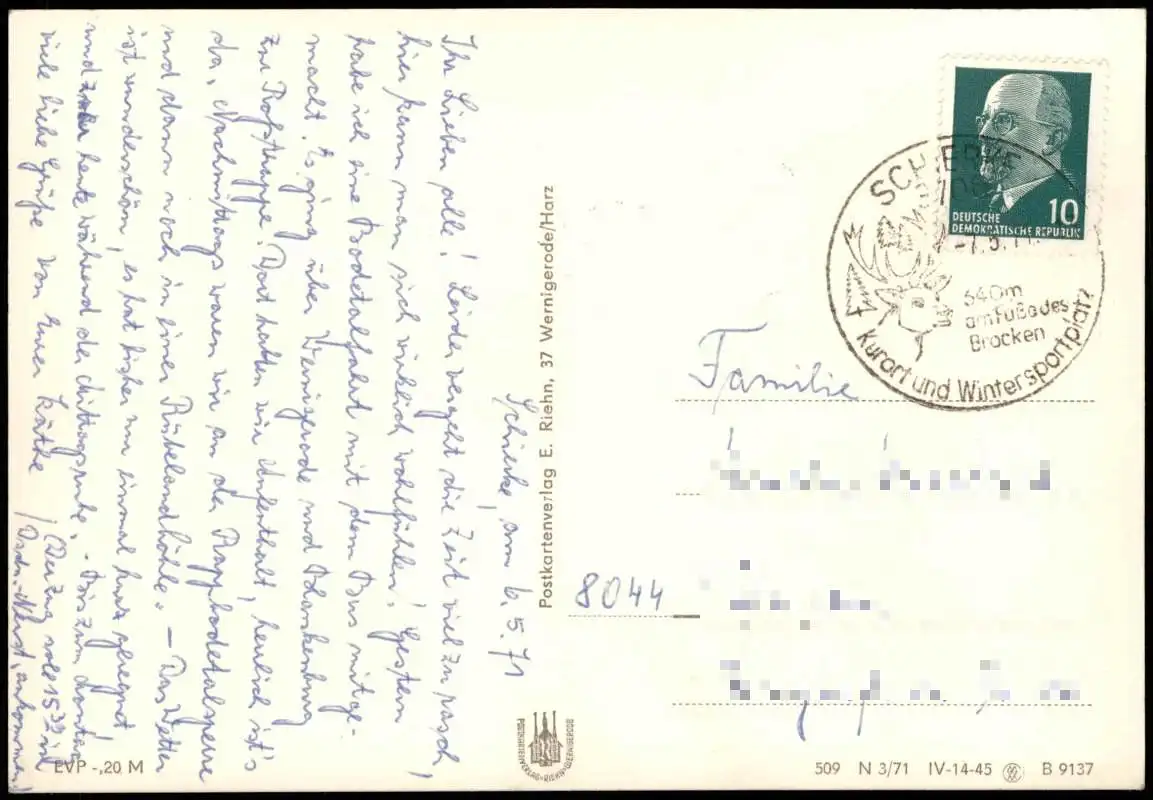 Schierke, am 6.5.71
Ihr Lieben alle! Leider vergeht die Zeit viel zu rasch,
hier kann man sich wirklich wohlfühlen. Gestern
habe ich eine Bodetalfahrt mit dem Bus mitge-
macht. Es ging über Wernigerode und Blankenburg
zur Roßtrappe. Dort hatten wir Aufenthalt, herrlich ist's
da. Nachmittags waren wir an der Rappbodetalsperre
und dann noch in einer Rübelandhöhle. – Das Wetter
ist wunderschön, es hat bisher nur einmal kurz geregnet
und zwar heute während der Mittagsruhe. – Bis zum
viele liebe Grüße von Eurer Käthe
(Der Zug soll 15 32 in
Dsdn.-Neust. ankommen)
Postkartenverlag E. Riehn, 37 Wernigerode/Harz
POSTKARTENVERLAG·RIEHN·WERNIGERODE
EVP -,20 M
DEUTSCHE
DEMOKRATISCHE REPUBLIK
10
SCHIERKE
-7.5.71
640m
am Fuße des
Brocken
Kurort und Wintersportplatz
Familie
8044
509 N 3/71 IV-14-45 B 9137